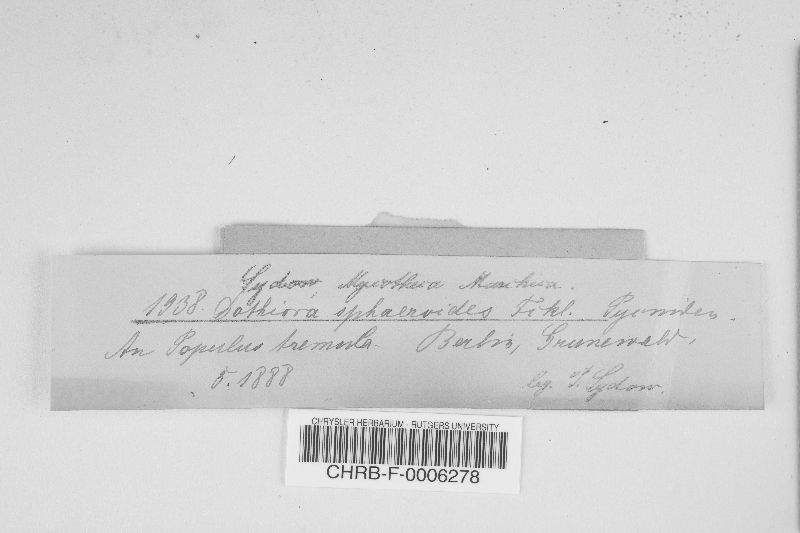 Sydow Mycotheca Marchica.
1938. Dothiora sphaeroides Fckl. Pycniden.
An Populus tremula. Berlin, Grunewald,
5. 1888 leg. P. Sydow.
CHRYSLER HERBARIUM - RUTGERS UNIVERSITY
CHRB-F-0006278